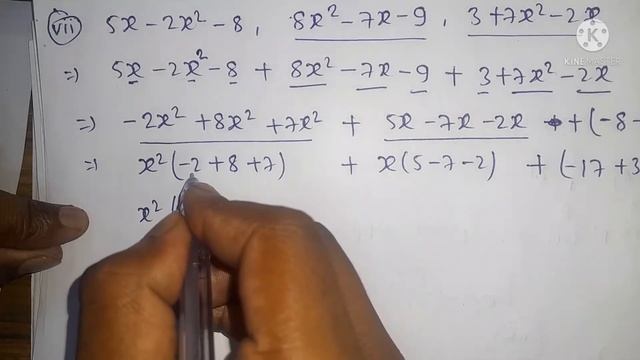 (vii) 5x - 2x² - 8 , 8x² - 7x - 9 , 3 + 7x² - 2x
⇒ 5x - 2x² - 8 + 8x² - 7x - 9 + 3 + 7x² - 2x
⇒ -2x² + 8x² + 7x² + 5x - 7x - 2x + (-8 -
⇒ x² (-2 + 8 + 7) + x (5 - 7 - 2) + (-17 + 3
x² (
KINEMASTER